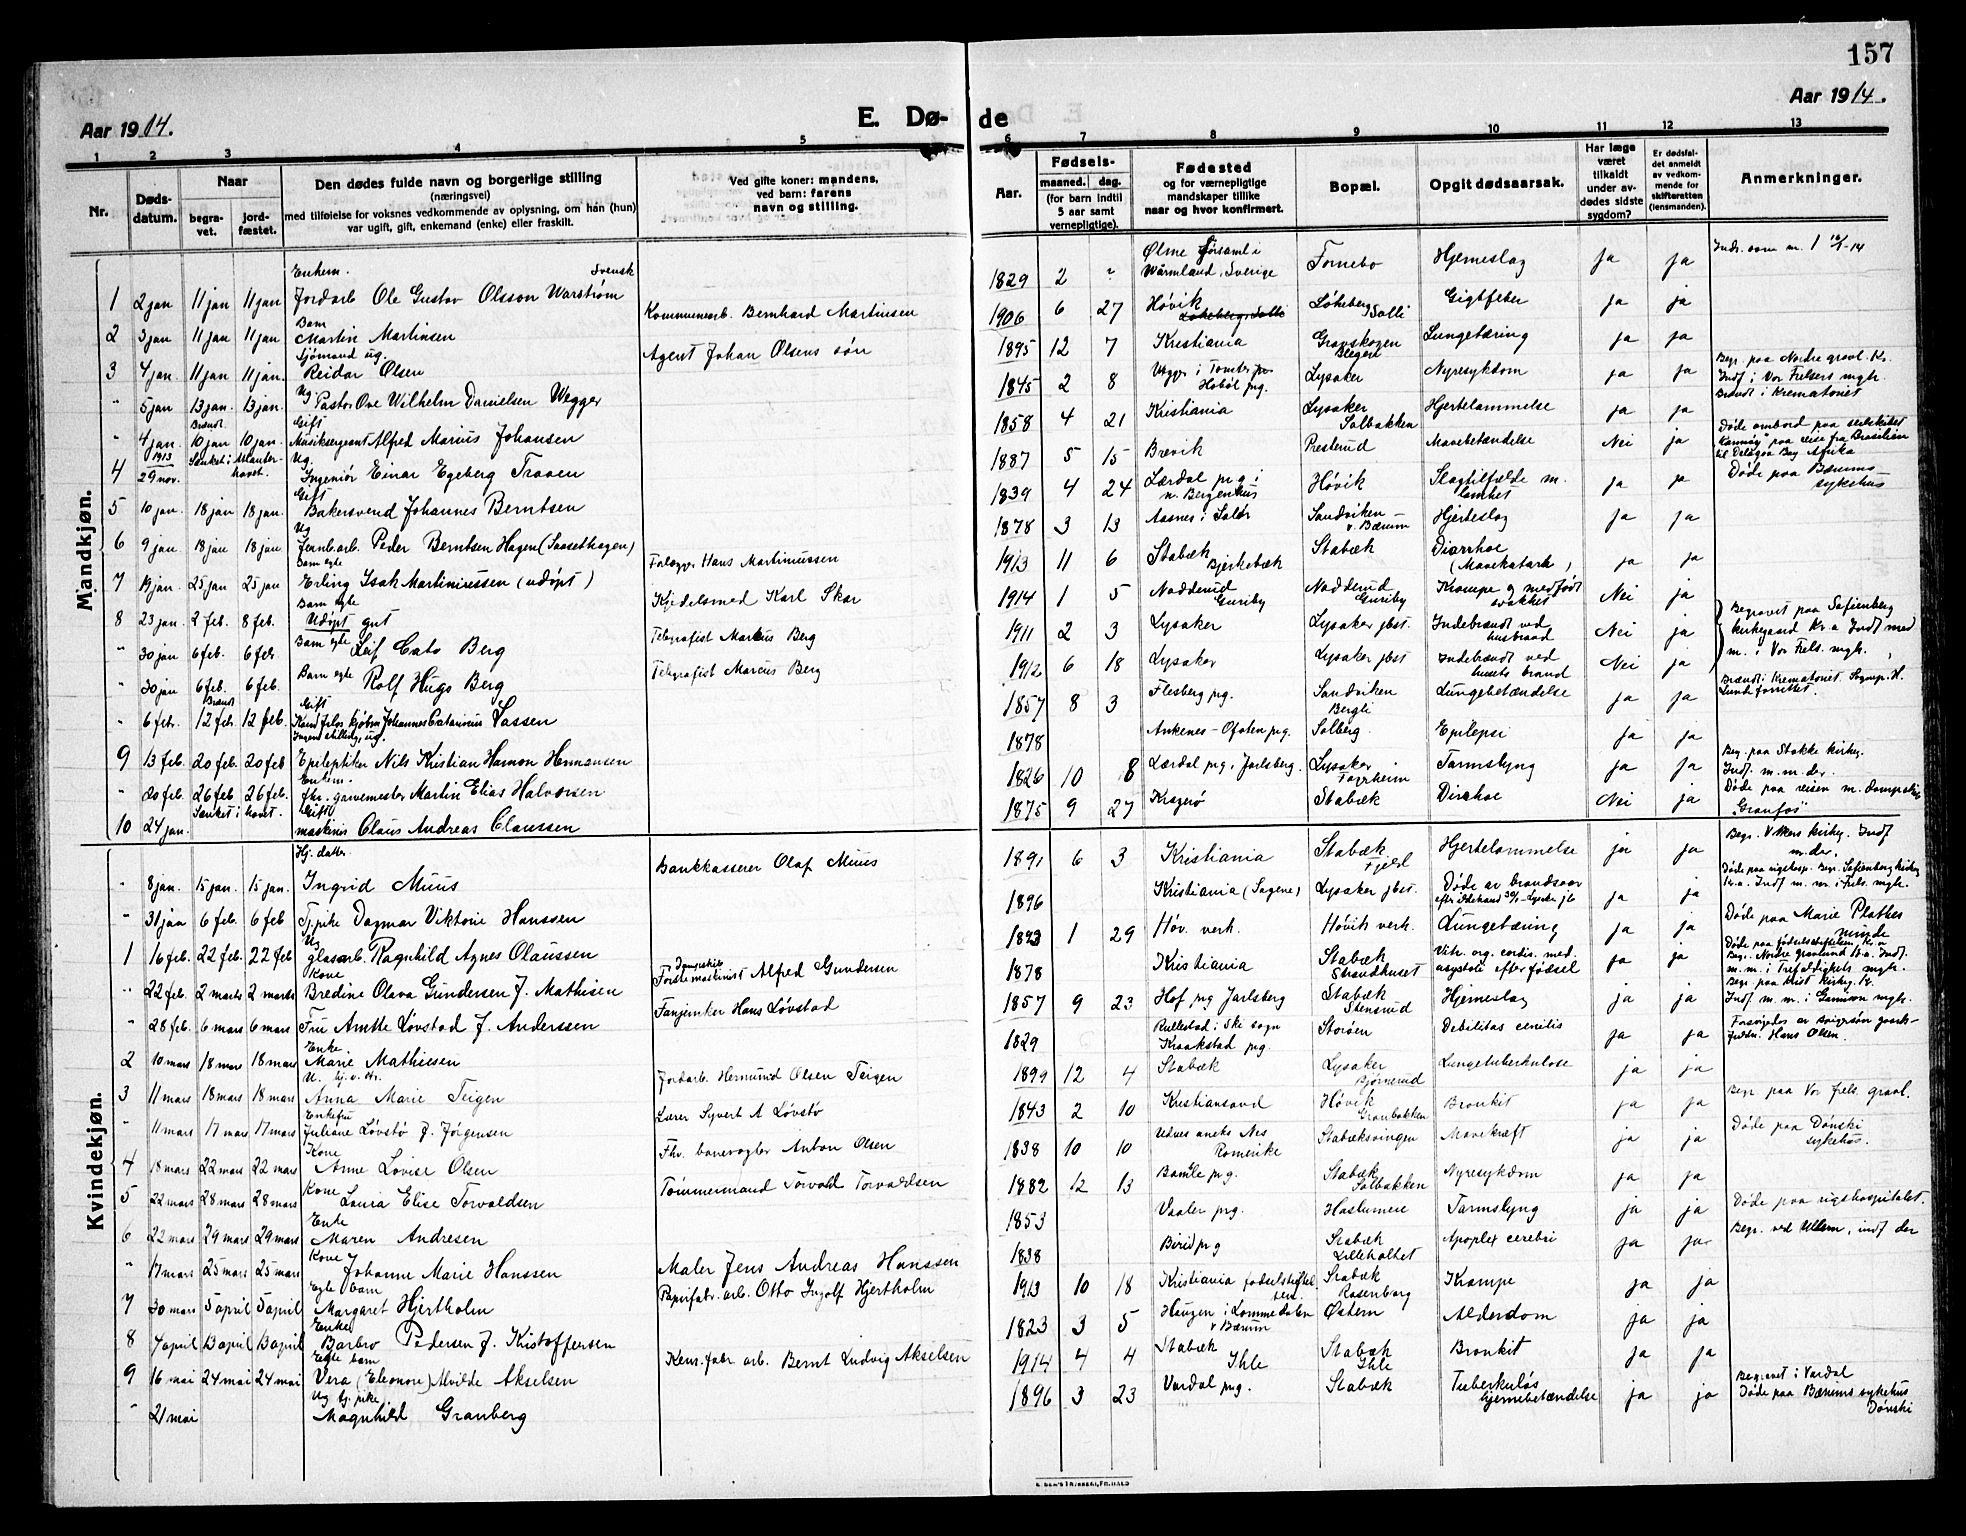 157
Aar 1914.
E. Dø- de
Aar 1914.
1 2 3 4 5 6 7 8 9 10 11 12 13
Nr.
Døds-datum.
Naar
begra-vet.
jord-fæstet.
Den dødes fulde navn og borgerlige stilling
(næringsvei)
med tilføielse for voksnes vedkommende av oplysning, om han (hun)
var ugift, gift, enkemand (enke) eller fraskilt.
Ved gifte koner: mandens,
ved barn: farens
navn og stilling.
Aar.
Fødsels-
maaned. dag.
(for barn indtil
5 aar samt
vernepligtige).
Fødested
og for værnepligtige
mandskaper tillike
naar og hvor konfirmert.
Bopæl.
Opgit dødsaarsak.
Har læge
været
tilkaldt
under av-
dødes sidste
sygdom?
Er dødsfal-
det anmeldt
av vedkom-
mende for
skifteretten
(lensmanden).
Anmerkninger.
Mandkjøn.
Enkem. Svensk
1 2 jan 11 jan 11 jan Jordarb Ole Gustav Olsson Warstrøm 1829 2 " Ølme församl i Wärmland, Sverige Fornebo Hjerneslag ja ja
Barn
2 3 jan 11 jan 11 jan Martin Martinsen Kommunearb. Bernhard Martinsen 1906 6 27 Høvik Løkeberg, Solli Gigtfeber ja ja
Sjømand ug.
3 4 jan. 11 jan 11 jan. Reidar Olsen Agent Johan Olsens søn 1895 12 7 Kristiania Granskogen Lungetæring ja ja
Ug
" 5 jan 13 jan. 13 jan. Pastor Ove Wilhelm Danielsen Wegger 1845 2 8 Hobøl prg. Lysaker Nyresykdom ja ja Begr. paa Nordre gravl. Kr. Indf i Vor Frelsers mgh. Brændt i Krematoriet
Brændt Gift
" 4 jan. 10 jan 10 jan. Musiksergeant Alfred Marius Johansen 1858 4 21 Kristiania Lysaker Solbakken Hjertelammelse ja ja
1913 Sænket i Atlanter-havet. Ug.
4 29 nov. Ingeniør Einar Egeberg Traaen 1887 5 15 Brevik Presterud Mavebetændelse Nei ja Døde ombord paa seilskibet paa reise fra Brasilien til Delagoa Bay Afrika
Gift
5 10 jan 18 jan 18 jan. Bakersvend Johannes Berntsen 1839 4 24 Lærdal prg i n. Bergenhus Høvik Slagtilfælde m. lamhet ja ja Døde paa Bærums sykehus
Ug
6 9 jan 18 jan 18 jan Jernb.arb. Peder Berntsen Hagen (Saasethagen) 1878 3 13 Aasnes i Solør Sandviken v. Bærum Hjerteslag ja ja
Barn egte
7 19 jan. 25 jan 25 jan Erling Isak Martiniussen (udøpt) Hans Martiniussen 1913 11 6 Stabæk Bjerkebæk Stabæk Diarrhoe (Mavekatarh) ja ja
Barn egte
8 23 jan. 2 feb. 8 feb. Udøpt gut Kjedelsmed Karl Skar 1914 1 5 Nadderud Guriby Nadderud Guriby Krampe og medfødt svakhet Nei ja
Barn egte
" 30 jan 6 feb. 6 feb Leif Cato Berg Telegrafist Markus Berg 1911 2 3 Lysaker Lysaker jbst. Indebrændt ved husbrand Nei ja Begravet paa Sofienberg kirkegaard Kr.a Indf med m. i Vor Frels. mgh.
Barn egte
" 30 jan 6 feb. 6 feb. Rolf Hugo Berg Telegrafist Marcus Berg 1912 6 18 Lysaker Lysaker jbst Indebrændt ved husets brand Nei ja
Brændt Gift
" 6 feb. 12 feb. 12 feb. Lassen 1857 8 3 Flesberg prg. Sandviken Bergli Lungebetændelse ja ja Brændt i Krematoriet
Ingen stilling, ug.
9 13 feb. 20 feb. 20 feb Epileptiker Nils Kristian Hamon Hermansen 1878 Ankenes - Ofoten prg. Solberg Epilepsi ja ja
Enkem.
" 20 feb. 26 feb 26 feb. fhv. garvemester Martin Elias Halvorsen 1826 10 8 Jarlsberg. Lysaker Tarmslyng ja ja Begr. paa Stokke kirkeg. Indf. m. m. der.
Sænket i havet. Gift
10 24 jan. maskinis Claus Andreas Claussen 1875 9 27 Kragerø Stabæk Diarrhoe Nei ja Døde paa reisen m. dampskib "Granfos"
Kvindekjøn.
Hj. datter
" 8 jan. 15 jan. 15 jan. Ingrid Muus Bankkasserer Olaf Muus 1891 6 3 Kristiania Stabæk Hjertelammelse ja ja Begr. V. Akers kirkeg. Indf m. der.
" 31 jan 6 feb. 6 feb. Tj.pike Dagmar Viktorie Hanssen 1896 Kristiania (Sagene) Lysaker jbst. Døde av brandsaar ja ja Døde paa rigshosp. Begr. Sofienberg kirkeg Kr.a. Indf m. m. i Frels. mgh.
Ug
1 16 feb. 22 feb. 22 feb glasarb. Ragnhild Agnes Olaussen 1893 1 29 Høv. verk. Høvik verk. Lungetæring ja ja Døde paa Marie Plathes minde
Kone
" 22 feb. 2 marts 2 marts Bredine Olava Gundersen f. Mathisen Første maskinist Alfred Gundersen 1878 Kristiania Stabæk Strandhuset Vit. org. cordis. med. asystoli efter fødsel ja ja Døde paa fødselsstiftelsen Kr.a Begr. Nordre gravlund Kr.a. Indf. m. m. i Trefoldighets mgh.
" 28 feb. 6 mars 6 mars Fru Anette Løvstad f. Anderssen Fanjunker Hans Løvstad 1857 9 23 Hof prg Jarlsberg Stabæk Stensrud Hjerneslag ja ja Begr paa Krist Kirkeg. Kr. Indf m. m. i Garnison mgh.
Enke
2 10 mars 18 mar 18 mars Marie Mathiesen 1829 Rullestad i Ski sogn Kraakstad prg. Storøen Debilitas cenilis ja ja Forsørgedes av svigersøn Hans Olsen.
3 11 mars 18 mars 18 mars Anna Marie Teigen Jordarb. Hermund Olsen Teigen 1899 12 4 Stabæk Lysaker Bjørnerud Lungetuberkulose ja ja
Enkefru
" 11 mars 17 mars 17 mars Juliane Løvstø f. Jørgensen Lærer Syvert A Løvstø 1843 2 10 Kristianssand Høvik Granbakken Bronkit ja ja Begr paa Vor Frels. gravl.
Kone
4 18 mars 22 mars 22 mars Anne Lovise Olsen Fhv. banevogter Anton Olsen 1838 10 10 Udnes aneks Nes Romerike Stabæksvingen Mavekræft ja ja Døde paa Dønski sykehus.
Kone
5 22 mars 28 mars 28 mars Laura Elise Torvaldsen Tømmermand Torvald Torvaldsen 1882 12 13 Bamle prg. Stabæk Solbakken Nyresykdom ja ja
Enke
6 22 mars 29 mars 29 mars Maren Andresen 1853 Vaaler prg. Haslumeie Tarmslyng ja ja Døde paa rigshospitalet.
Kone
" 17 mars 25 mars 25 mars Johanne Marie Hanssen Maler Jens Andreas Hanssen 1838 Birid prg Stabæk Lilleholtet Apoplex cerebri ja ja Begr. ved Ullern, indf der
Egte barn
7 30 mars 5 april 5 april Margaret Hjertholm Papirfabr. arb. Otto Ingolf Hjertholm 1913 10 18 Kristiania fødselsstiftelsen Stabæk Rosenborg Krampe ja ja
Enke
8 7 april 13 april 13 april Barbro Pedersen f. Kristoffersen 1823 3 5 Haugen i Lommedalen v Bærum Østern Alderdom ja ja
Egte barn
9 16 mai 24 mai 24 mai Vera (Eleonore) Alvilde Akselsen Kem. fabr arb. Bernt Ludvig Akselsen 1914 4 4 Stabæk Ihle Stabæk Ihle Bronkit ja ja
Ug tj. pike
" 21 mai Magnhild Granberg 1896 3 23 Vardal prg. Stabæk Tuberkuløs hjernebetændelse ja ja Begravet i Vardal Døde paa Bærums sykehus Dønski